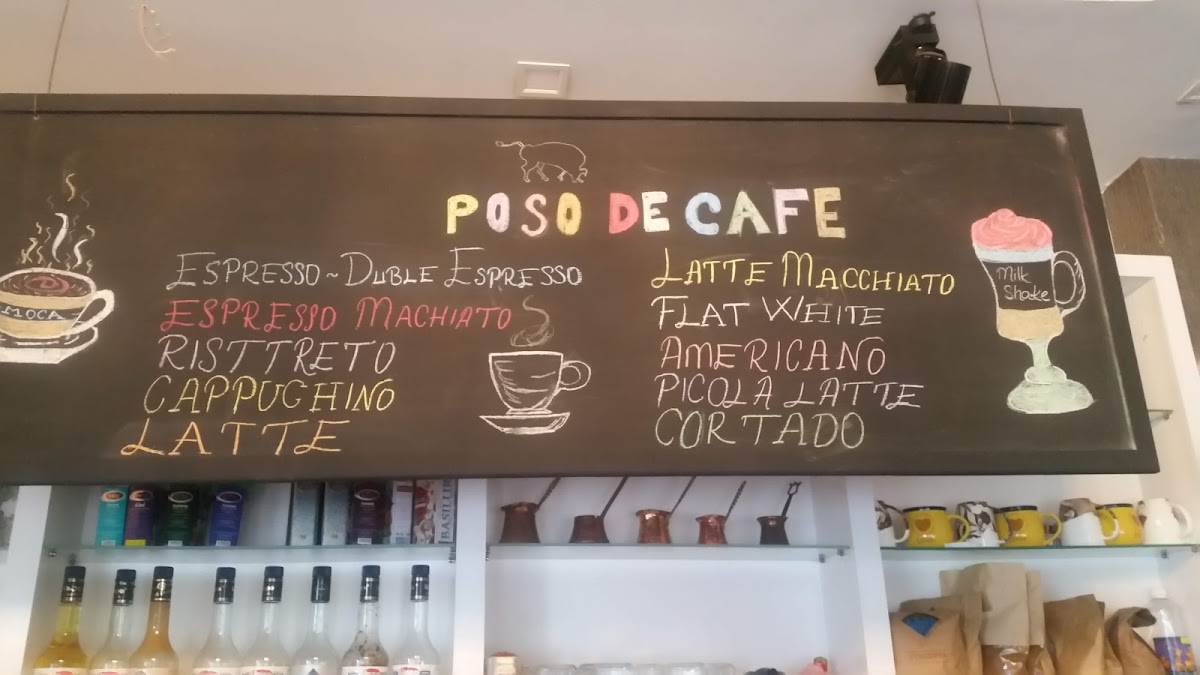 POSO DE CAFE
ESPRESSO ~ DUBLE ESPRESSO
ESPRESSO MACHIATO
RISTTRETO
CAPPUCHINO
LATTE
LATTE MACCHIATO
FLAT WHITE
AMERICANO
PICOLA LATTE
CORTADO
MOCA
Milk
Shake
BASILUR